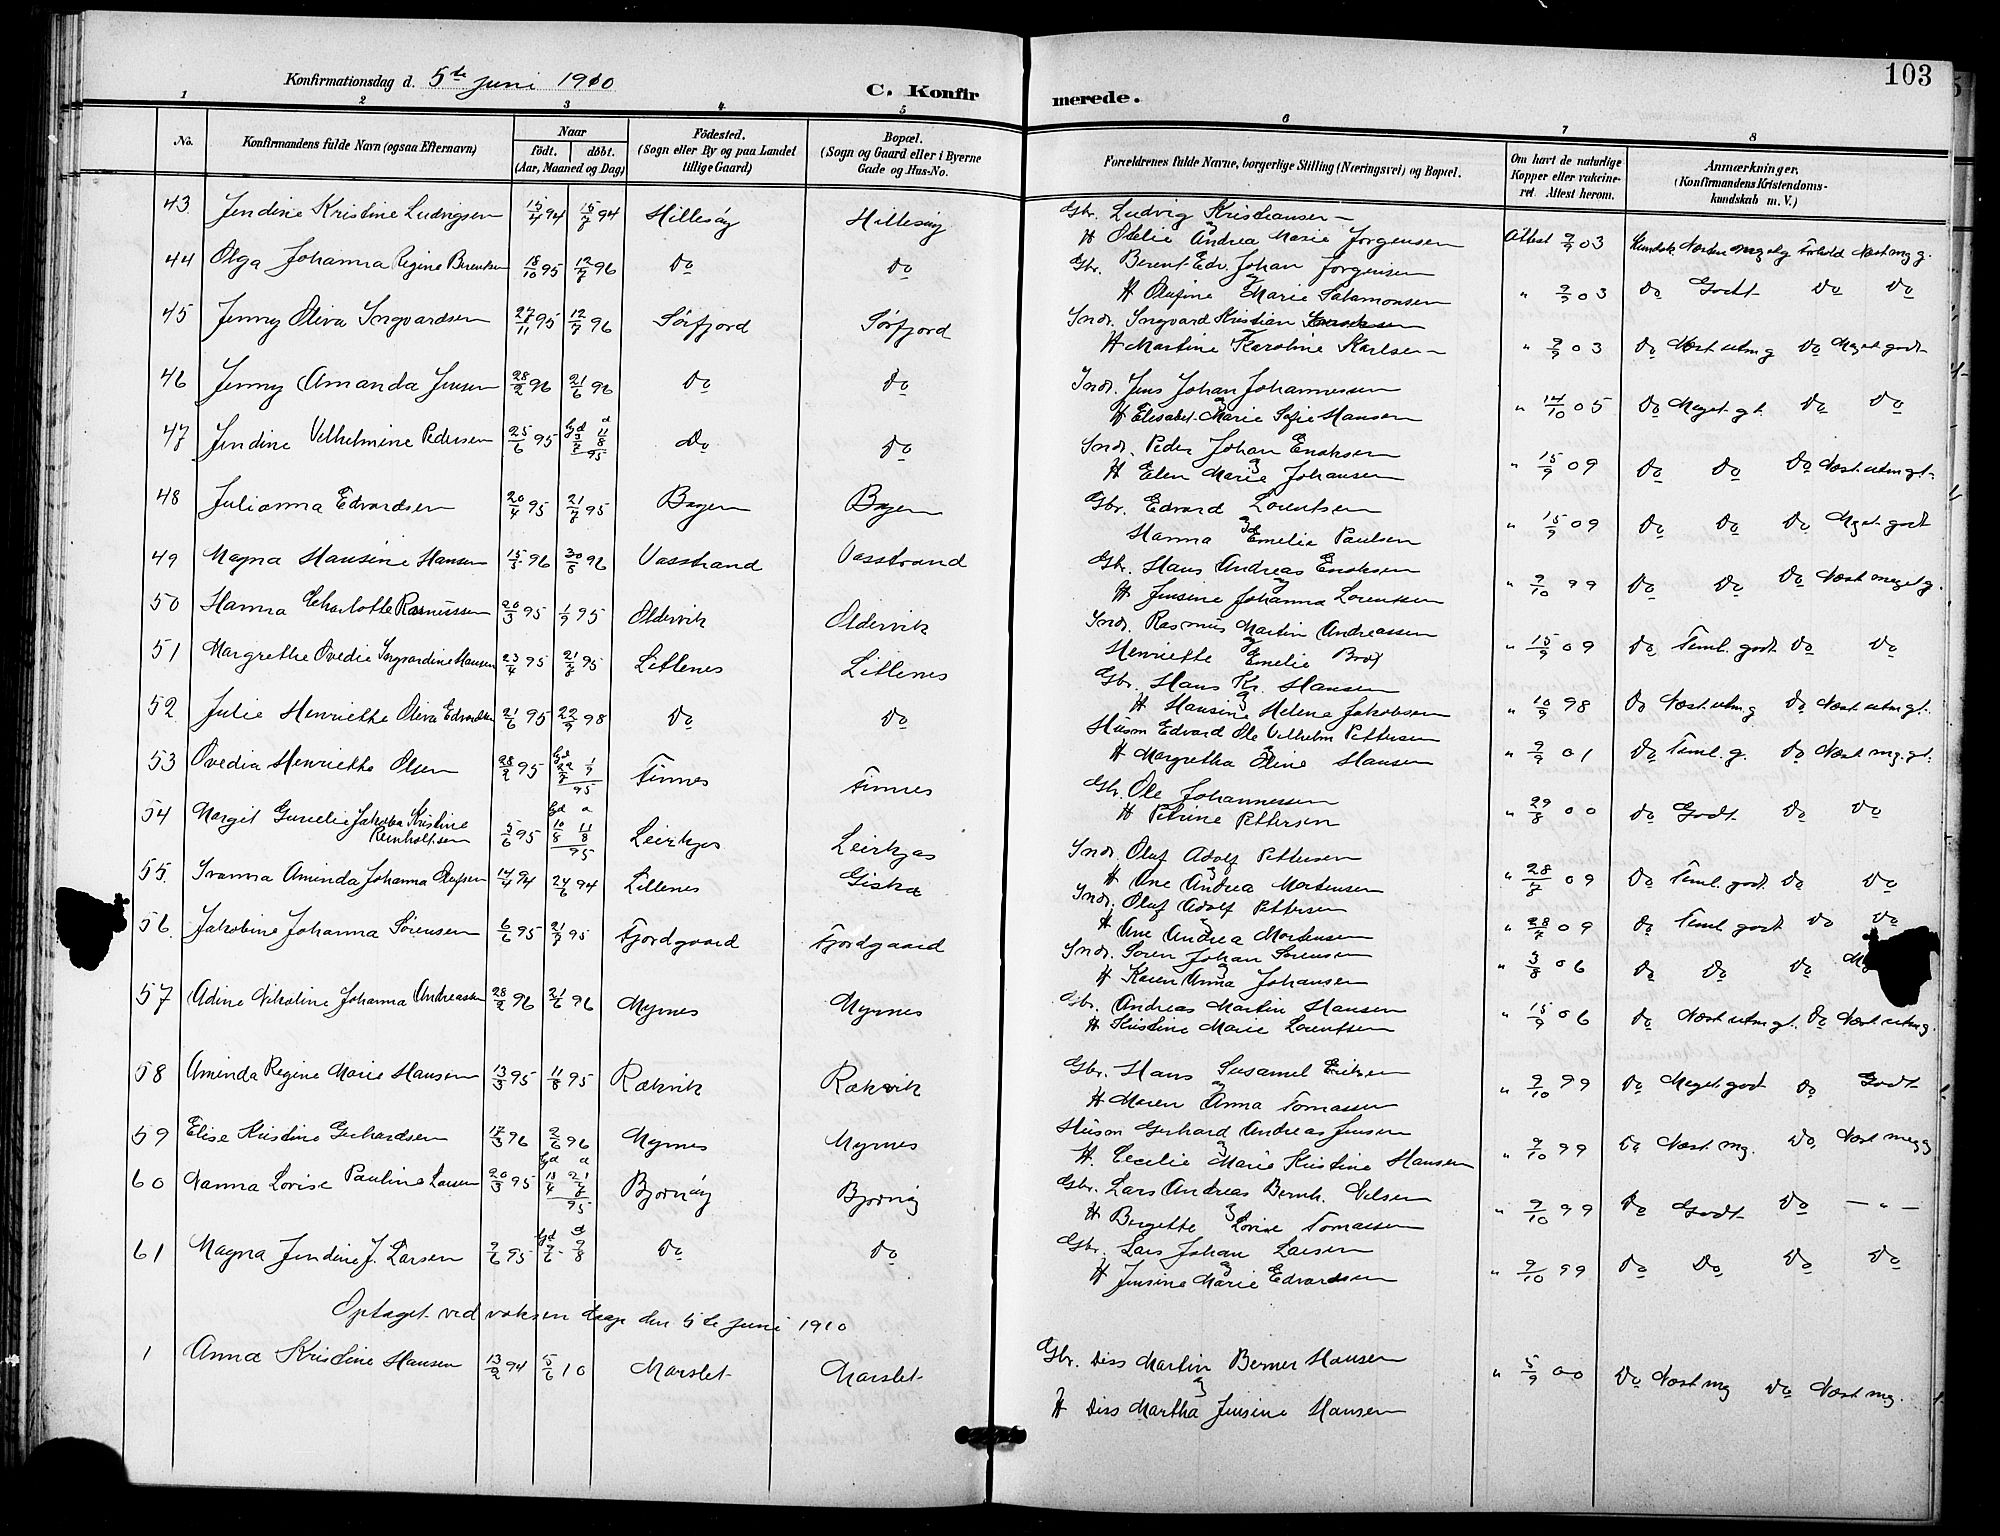 103
Konfirmationsdag d. 5te juni 1910
C. Konfirmerede.
1 2 3 4 5 6 7 8
No.
Konfirmandens fulde Navn (ogsaa Efternavn)
Naar
födt. döbt.
(Aar, Maaned og Dag)
Födested.
(Sogn eller By og paa Landet tillige Gaard)
Bopæl.
(Sogn og Gaard eller i Byerne Gade og Hus-No.
Forældrenes fulde Navne, borgerlige Stilling (Næringsvei) og Bopæl.
Om havt de naturlige Kopper eller vakcineret. Attest herom.
Anmærkninger.
(Konfirmandens Kristendomskundskab m. V.)
43 Jendine Kristine Ludvigsen 15/4 94 15/7 94 Hillesöy Hillesöy Gbr. Ludvig Kristiansen Attest 9/9 03 Kundsk. Næsten meg. Forhold Næst mg g.
H Otelie Andrea Marie Jorgensen
44 Olga Johanna Regine Berentsen 18/10 95 12/7 96 Do Do Gbr. Berent Edv. Johan Jorgensen " 9/9 03 Do Godt Do Do
H Olufine Marie Salamonsen
45 Jenny Oliva Ingvardsen 27/11 95 12/7 96 Sörfjord Sörfjord Indr. Ingvard Kristian
H Martine Karoline Karlsen " 9/9 03 Do Næst utm g Do Meget godt
46 Jenny Amanda Jensen 28/2 96 21/6 96 Do Do Indr. Jens Johan Johannessen
H Elisabet Marie Sofie Hansen " 14/10 05 Do Meget gt. Do Do
47 Jendine Vilhelmine Pedersen 25/6 95 Gd d 11/8 95 Do Do Indr. Peder Johan Enoksen
H Elen Marie Johansen " 15/9 09 Do Do Do Næst utm gt.
48 Julianna Edvardsen 20/4 95 21/7 95 Bagen Bagen Gbr. Edvard Lorentsen
Hanna Emelie Paulsen " 15/9 09 Do Do Do Meget godt
49 Magna Hansine Hansen 15/3 96 30/8 96 Vasstrand Vasstrand Gbr. Hans Andreas Enoksen
H Jensine Johanna Lorentsen " 9/10 99 Do Do Do Næst meget g.
50 Hanna Charlotte Rasmussen 20/3 95 1/9 95 Oldervik Oldervik Indr. Rasmus Martin Andreassen
Henriette Emelie Brox " 15/9 09 Do Teml. godt Do Do
51 Margrethe Ovedie Ingvardine Hansen 23/4 95 21/7 95 Litlenes Litlenes Gbr. Hans Kr. Hansen
H Hansine Helene Jakobsen " 10/9 98 Do Næst utm g Do Næst utm gt.
52 Julie Henriette Oliva Edvardsen 21/6 95 22/9 98 Do Do Husm Edvard Ole Vilhelm Pettersen
H Margretha Oline Hansen " 9/9 01 Do Teml. g. Do Næst mg. gt.
53 Ovedia Henriette Olsen 28/2 95 Gd 1/9 95 Finnes Finnes Gbr. Ole Johannessen
H Petrine Pettersen " 29/8 00 Do Godt. Do Do
54 Margit Gunelie Jakoba Kristine Reinholtsen 5/6 95 Gd d 10/8 11/8 95 Leirkjos Leirkjos Indr. Oluf Adolf Pettersen
H Ane Andrea Mortensen " 28/7 09 Do Teml. godt Do Do
55. Ivanna Aminda Johanna Olufsen 14/4 94 24/6 94 Lillenes Giska Indr. Oluf Adolf Pettersen
H Ane Andrea Mortensen " 28/7 09 Do Teml. godt Do Do
56. Jakobine Johanna Sörensen 6/6 95 21/7 95 Fjordgaard Fjordgaard Indr. Sören Johan Sörensen
H Karen Anna Johansen " 3/8 06 Do Do Do
57 Adine Nikoline Johanna Andreassen 28/2 96 21/6 96 Myrnes Myrnes Gbr. Andreas Martin Hansen
H Kristine Marie Lorentsen " 15/9 06 Do Næst utm gt. Do Næst utm g.
58 Aminda Regine Marie Hansen 13/3 95 11/8 95 Rækvik Rækvik Gbr. Hans Susamel Eriksen
H Maren Anna Tomassen " 9/10 99 Do Meget godt Do Godt
59 Elise Kristine Gerhardsen 17/3 96 2/6 96 Myrnes Myrnes Husm Gerhard Andreas Jensen
H. Cecelie Marie Kristine Hansen " 9/10 99 Do Næst mg. Do Næst meg g
60 Nanna Lovise Pauline Larsen 20/3 95 Gd d 13/4 21/7 95 Bjornöy Bjornöy Gbr. Lars Andreas Bernh. Nilsen
H Bergette Lovise Tomassen " 9/10 99 Do Godt Do — " —
61 Magna Jendine J. Larsen 9/6 95 Gd d 9/6 9/8 Do Do Gbr. Lars Johan Larsen
H Jensine Marie Edvardsen " 9/10 99 Do Do Do Do
Optaget ved voksen daap den 5te juni 1910
1 Anna Kristine Hansen 13/2 94 5/6 10 Marslet Marslet Gbr. Diss Martin Berner Hansen " 5/9 00 Do Næst mg Do Næst mg.
H Diss Martha Jensine Hansen